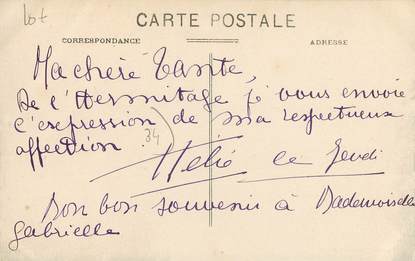 Lot
CARTE POSTALE
CORRESPONDANCE
ADRESSE
Ma chère Tante,
De l'Hermitage je vous envoie
l'expression de ma respectueux
affection.
34
Hélie ce Jeudi
Bon bon souvenir à Mademoiselle
Gabrielle